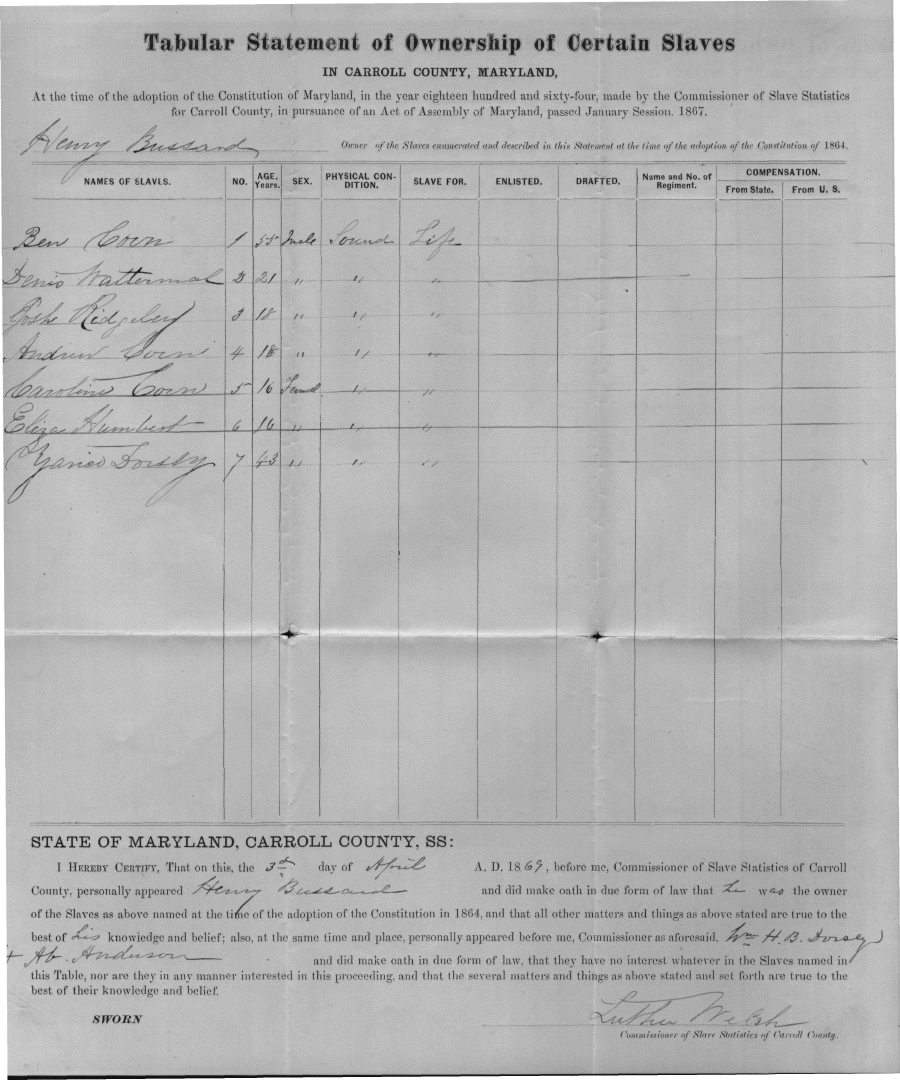 Tabular Statement of Ownership of Certain Slaves
IN CARROLL COUNTY, MARYLAND,
At the time of the adoption of the Constitution of Maryland, in the year eighteen hundred and sixty-four, made by the Commissioner of Slave Statistics
for Carroll County, in pursuance of an Act of Assembly of Maryland, passed January Session. 1867.
Henry Bussard Owner of the Slaves enumerated and described in this Statement at the time of the adoption of the Constitution of 1864.
NAMES OF SLAVES. NO. AGE. Years. SEX. PHYSICAL CONDITION. SLAVE FOR. ENLISTED. DRAFTED. Name and No. of Regiment. COMPENSATION. From State. From U. S.
Ben Corn 1 55 Male Sound Life
Denis Wattermal 2 21 " " "
Josh Ridgeley 3 18 " " "
Andrew Corn 4 18 " " "
Caroline Corn 5 16 Femal " "
Eliza Humbert 6 16 " " "
Dorsey 7 43 " " "
STATE OF MARYLAND, CARROLL COUNTY, SS:
I HEREBY CERTIFY, That on this, the 3d day of April A. D. 1869, before me, Commissioner of Slave Statistics of Carroll
County, personally appeared Henry Bussard and did make oath in due form of law that he was the owner
of the Slaves as above named at the time of the adoption of the Constitution in 1864, and that all other matters and things as above stated are true to the
best of his knowledge and belief; also, at the same time and place, personally appeared before me, Commissioner as aforesaid, Wm H. B. Dorsey
+ Ab. Anderson and did make oath in due form of law, that they have no interest whatever in the Slaves named in
this Table, nor are they in any manner interested in this proceeding, and that the several matters and things as above stated and set forth are true to the
best of their knowledge and belief.
SWORN
Luther Welsh
Commissioner of Slave Statistics of Carroll County.